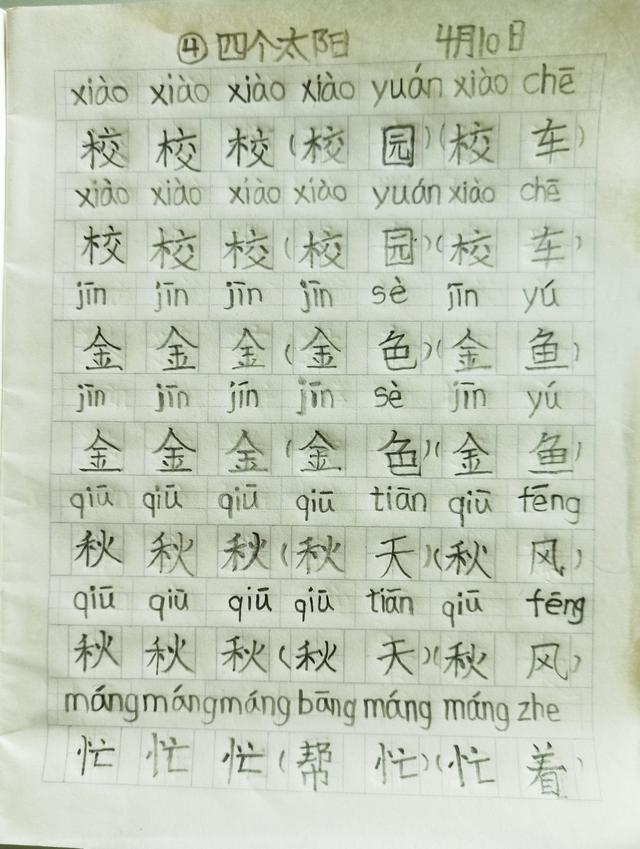 ④四个太阳 4月10日
xiào xiào xiào xiào yuán xiào chē
校 校 校 (校 园)(校 车)
xiào xiào xiào xiào yuán xiào chē
校 校 校 (校 园)(校 车)
jīn jīn jīn jīn sè jīn yú
金 金 金 (金 色)(金 鱼)
jīn jīn jīn jīn sè jīn yú
金 金 金 (金 色)(金 鱼)
qiū qiū qiū qiū tiān qiū fēng
秋 秋 秋 (秋 天)(秋 风)
qiū qiū qiū qiū tiān qiū fēng
秋 秋 秋 (秋 天)(秋 风)
máng máng máng bāng máng máng zhe
忙 忙 忙 (帮 忙)(忙 着)